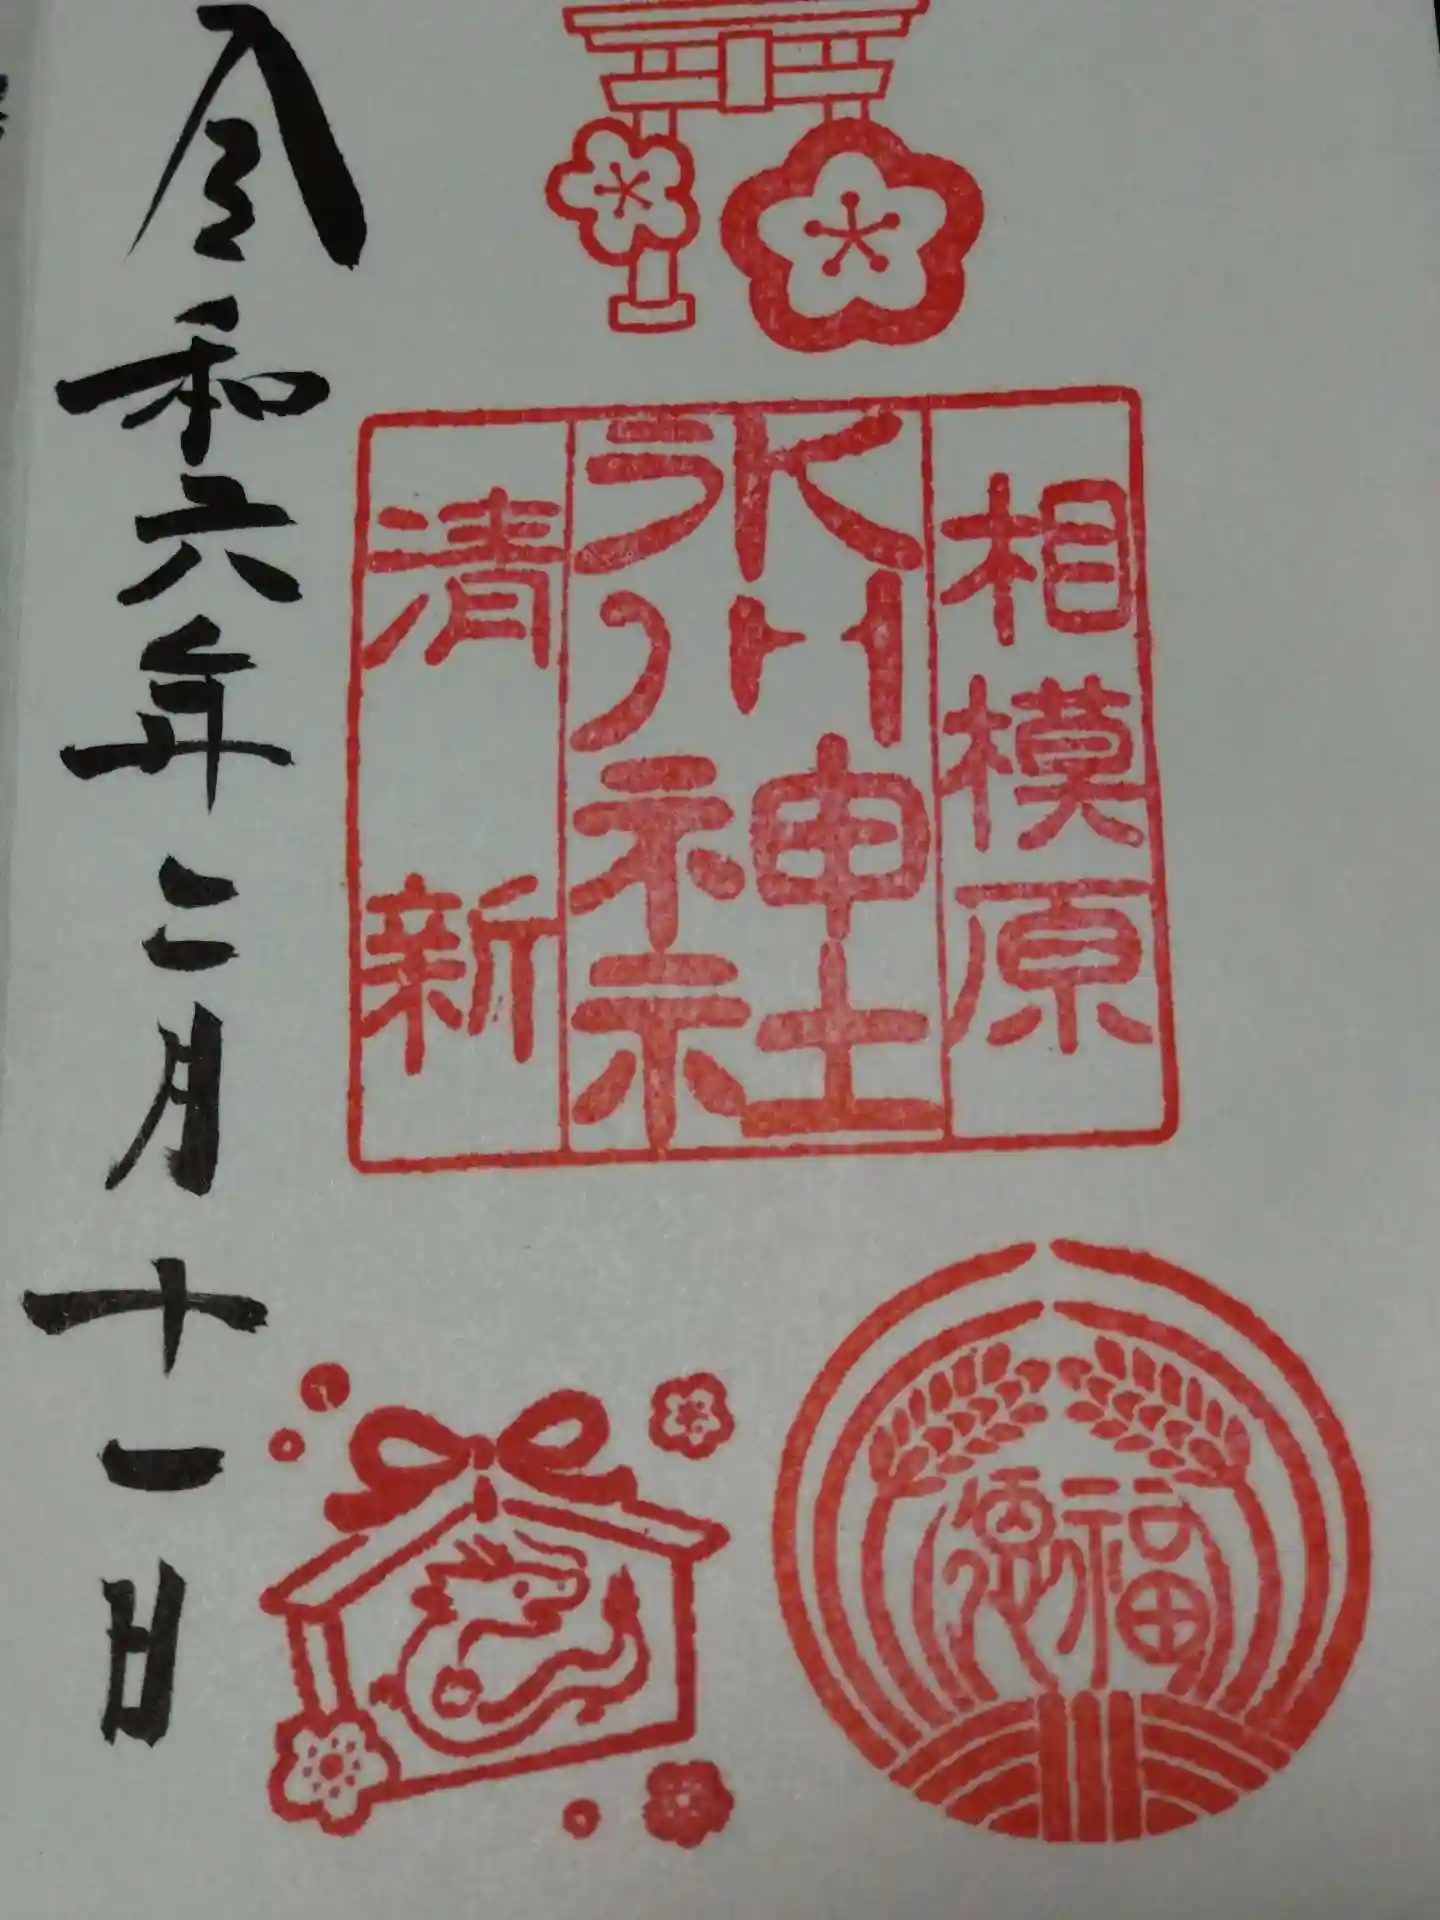 相模原
氷川神社
清新
福徳
令和六年二月十一日